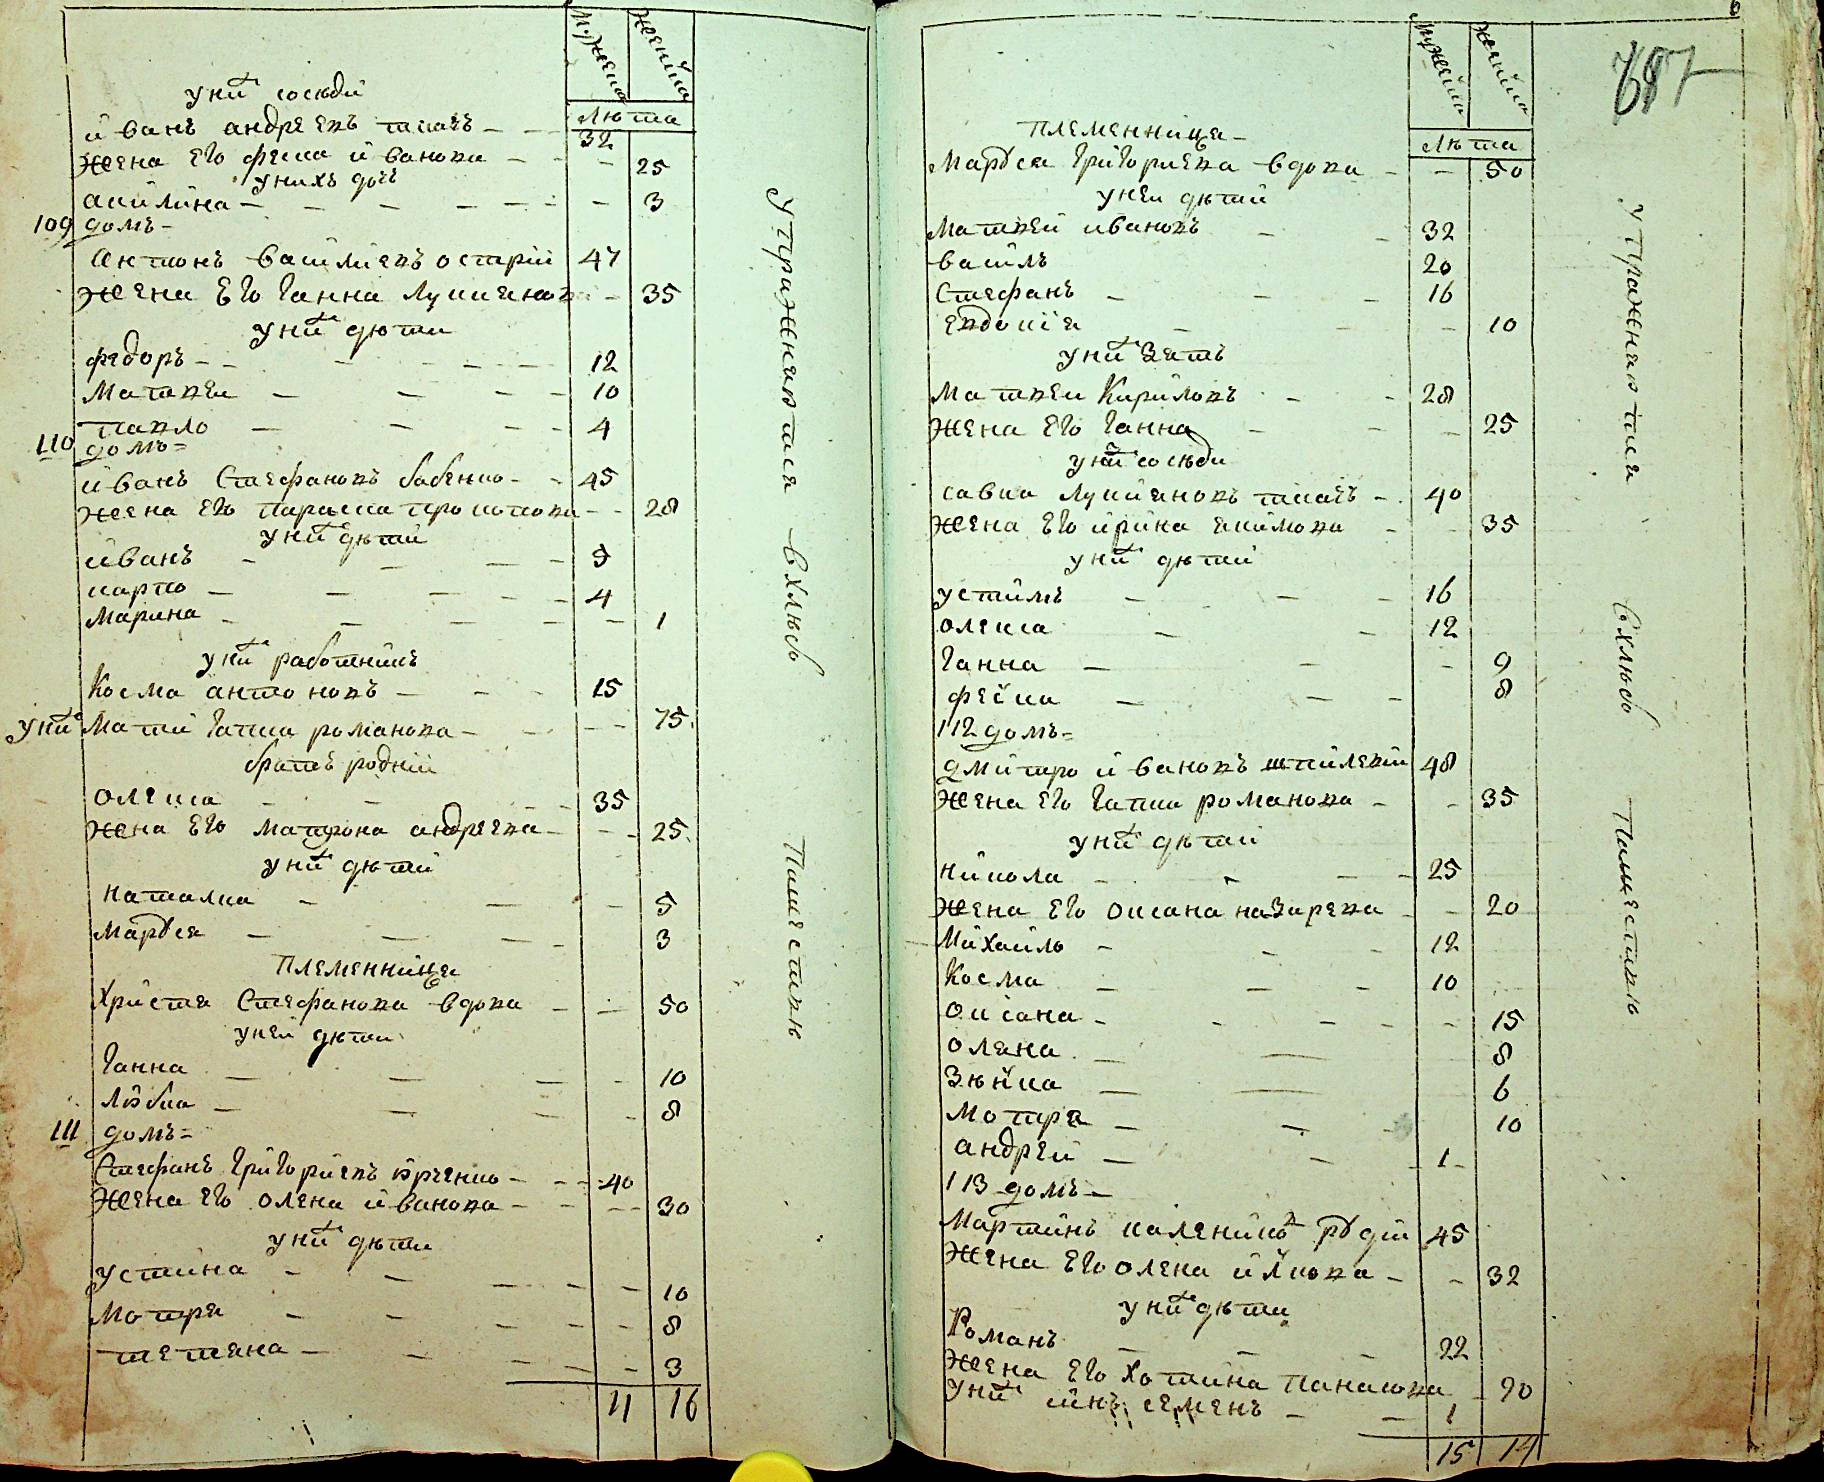 Мужеска
Женйска
Лѣта
у нит сосѣди
йванъ андреевъ ткачъ 32
жена его феска йванова 25
у нихъ дочъ
акилйна 3
109 домъ
Антонъ васйлиевъ острий 47
жена его Ганна Лукиянова 35
у нит дѣти
федоръ 12
Матвеи 10
павло 4
110 домъ
йванъ Стефановъ бабенко 45
жена его параска прокопова 28
у нит дѣтй
йванъ 9
карпо 4
Марина 1
у нит работникъ
Косма антоновъ 15
у нит Мати Гапка романова 75
братъ роднй
олекса 35
жена его матрона андреева 25
у нит дѣтй
наталка 5
Марѳся 3
племеннйца
Христя Стефанова вдова 50
у неи дѣти
Ганна 10
Любка 8
111 домъ
Стефанъ Григориевъ юрченко 40
жена его олена йванова 30
у нит дѣти
устина 10
Мотря 8
тетяна 3
11 16
упражняются в хлѣбо пашествѣ
687
Мужейска
женйска
Лѣта
племеннйца
Марѳся Григориева вдова 50
у неи дѣтй
Матвеи ивановъ 32
васйль 20
Стефанъ 16
евдокия 10
у нит зять
Матвеи Кирйловъ 28
жена его Ганна 25
у нит сосѣди
савка лукияновъ ткачъ 40
жена его йрина екимова 35
у нит дѣтй
устймъ 16
олекса 12
Ганна 9
фейка 8
112 домъ
дмитро йвановъ шпйлевий 48
жена его Гапка романова 35
у нит дѣтй
нйкола 25
жена его оксана назарева 20
Михайло 12
Косма 10
оксана 15
олена 8
Зѣнка 6
Мотря 10
андрей 1
113 домъ
Мартинъ каленйковъ рудий 45
жена его олена йлкова 32
у нит дѣти
Романъ 22
жена его Хотина панасова 20
у нит синъ семенъ 1
15 14
упражняются в хлѣбо пашествѣ